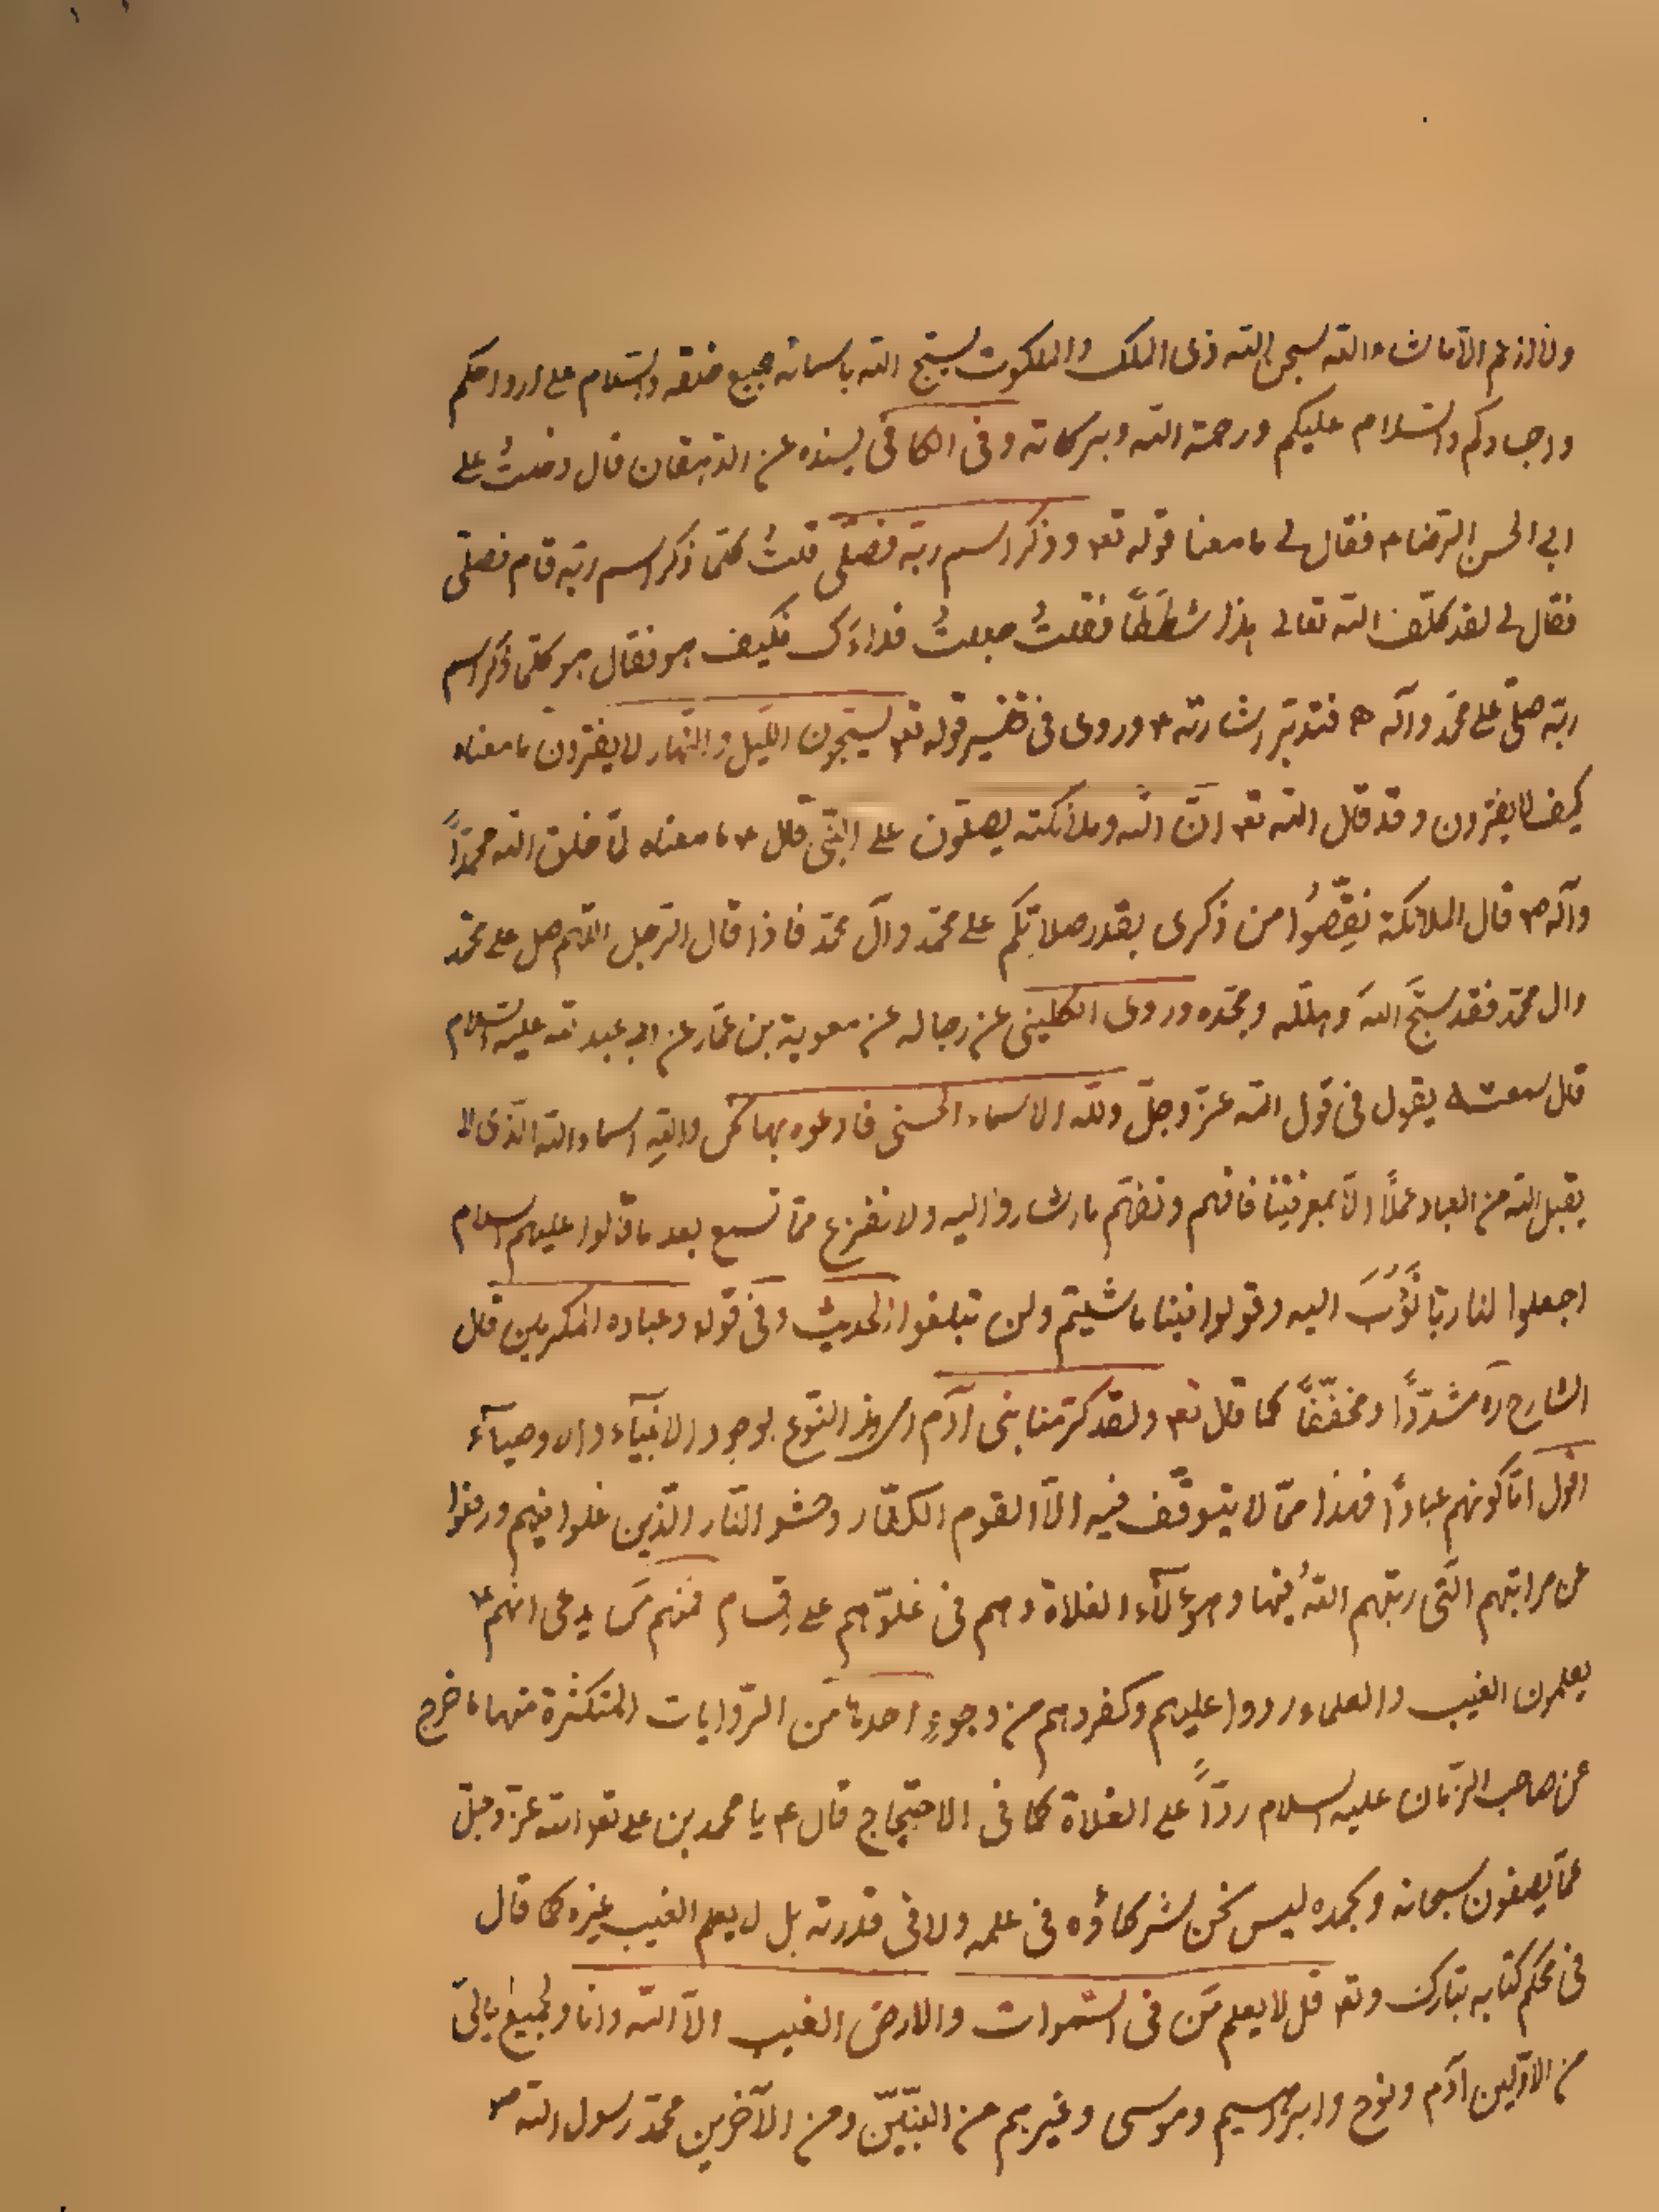 ولا ازعم الا ما شاء الله سبحان الله ذی الملك والملكوت يسبح الله باسمائه جميع خلقه والسّلام علی ارواحكم
واجسادكم والسّلام عليكم ورحمة الله وبركاته وفی الكافی بسنده عن الدهقان قال دخلتُ علی
ابی الحسن الرّضا ع فقال لی ما معنا قوله تع وذكر اسم ربّه فصلّی قلتُ كلّما ذكر اسم ربّه قام فصلّی
فقال لی لقد كلّف الله تعالی هذا شططًا فقلتُ جعلتُ فداءَك فكيف هو فقال هو كلّما ذكر اسم
ربّه صلّی علی محمّد وآله ص فتدبّر اشارته ع وروی فی تفسير قوله تع يسبّحون اللّيل والنّهار لا يفترون ما معناه
كيف لا يفترون وقد قال الله تع انّ الله وملائكته يصلّون علی النّبی قال ع ما معناه لمّا خلق الله محمّدًا
وآله ص قال الملائكة نقّصُوا من ذكری بقدر صلاتكم علی محمّد وآل محمّد فاذا قال الرّجل اللّهم صل علی محمّد
وال محمّد فقد سبَّح اللهَ وهلّله ومجّده وروی الكلينی عن رجاله عن معوية بن عمّار عن ابی عبد الله عليه السّلام
قال سمعته يقول فی قول الله عزّ وجلّ ولله الاسماء الحسنی فادعوه بها نحن والله اسماء الله الّذی لا
يقبل الله من العباد عملًا الّا بمعرفتنا فافهم وتفهّم ما اشاروا اليه ولا تفزع ممّا تسمع بعد ما قالوا عليهم السلام
اجعلوا لنا ربّا نَؤُبُ اليه وقولوا فينا ما شيتم ولن تبلغوا الحديث وفی قوله وعباده المكرمين قال
الشارح ره مشدّدًا ومخفّفًا كما قال تع ولقد كرّمنا بنی آدم ای هذا النّوع بوجود الانبيآء والاوصيآء
اقول امّا كونهم عبادًا فهذا ممّا لا يتوقّف فيه الّا القوم الكفّار وحشو النّار الّذين غلوا فيهم ورفعوا
عن مراتبهم الّتی رتبهم اللهُ فيها وهؤلآء الغلاة وهم فی غلوّهم علی اقسام فمنهم مَن يدعی انهم ع
يعلمون الغيب والعلماء ردوا عليهم وكفروهم من وجوهٍ احدها مَن الرّوايات المتكثرة منها ما خرج
عن صاحب الزّمان عليه السلام ردًّا علی الغلاة كما فی الاحتجاج قال ع يا محمد بن علی تع الله عزّ وجلّ
عمّا يصفون سبحانه وبحمده ليس نحن شركاؤه فی علمه ولا فی قدرته بل لا يعلم الغيب غيره كما قال
فی محكم كتابه تبارك وتع قل لا يعلم مَن فی السّموات والارض الغيب الّا الله وانا وجميع آبائی
من الاوّلين آدم ونوح وابرهيم وموسی وغيرهم من النبيّين ومن الآخرين محمّد رسول الله ص